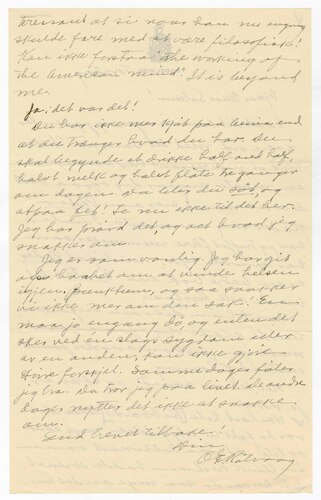 at si naar han nu engang
skulde fare med at være filosofisk!
Kan ikke forstaa "the working of
the American mind". It is beyond
me.
Ja, det var det!
Du har ikke mer kjöt paa beina end
at du trænger hvad du har. Du
skal begynde at drikke half and half,
halvt melk og halvt flöte tre ganger
om dagen. Da eter du dig
fet! Se nu ikke til det her.
Jeg har prövd det, og vet hvad jeg
snakker om.
Jeg er som vanlig. Jeg har git
op haabet om at vinde helsen
igjen. Punktum, og saa snakker
vi ikke mer om den sak! En
maa jo engang dö, og enten det
sker ved en slags sygdom eller
av en anden, kan ikke gjöre
stort forskjel. Somme dager föles
jeg bra. Da tror jeg paa livet. De andre
dager nytter det ikke at snakke
om.
Send brevet tilbake!
Din
O E Rölvaag